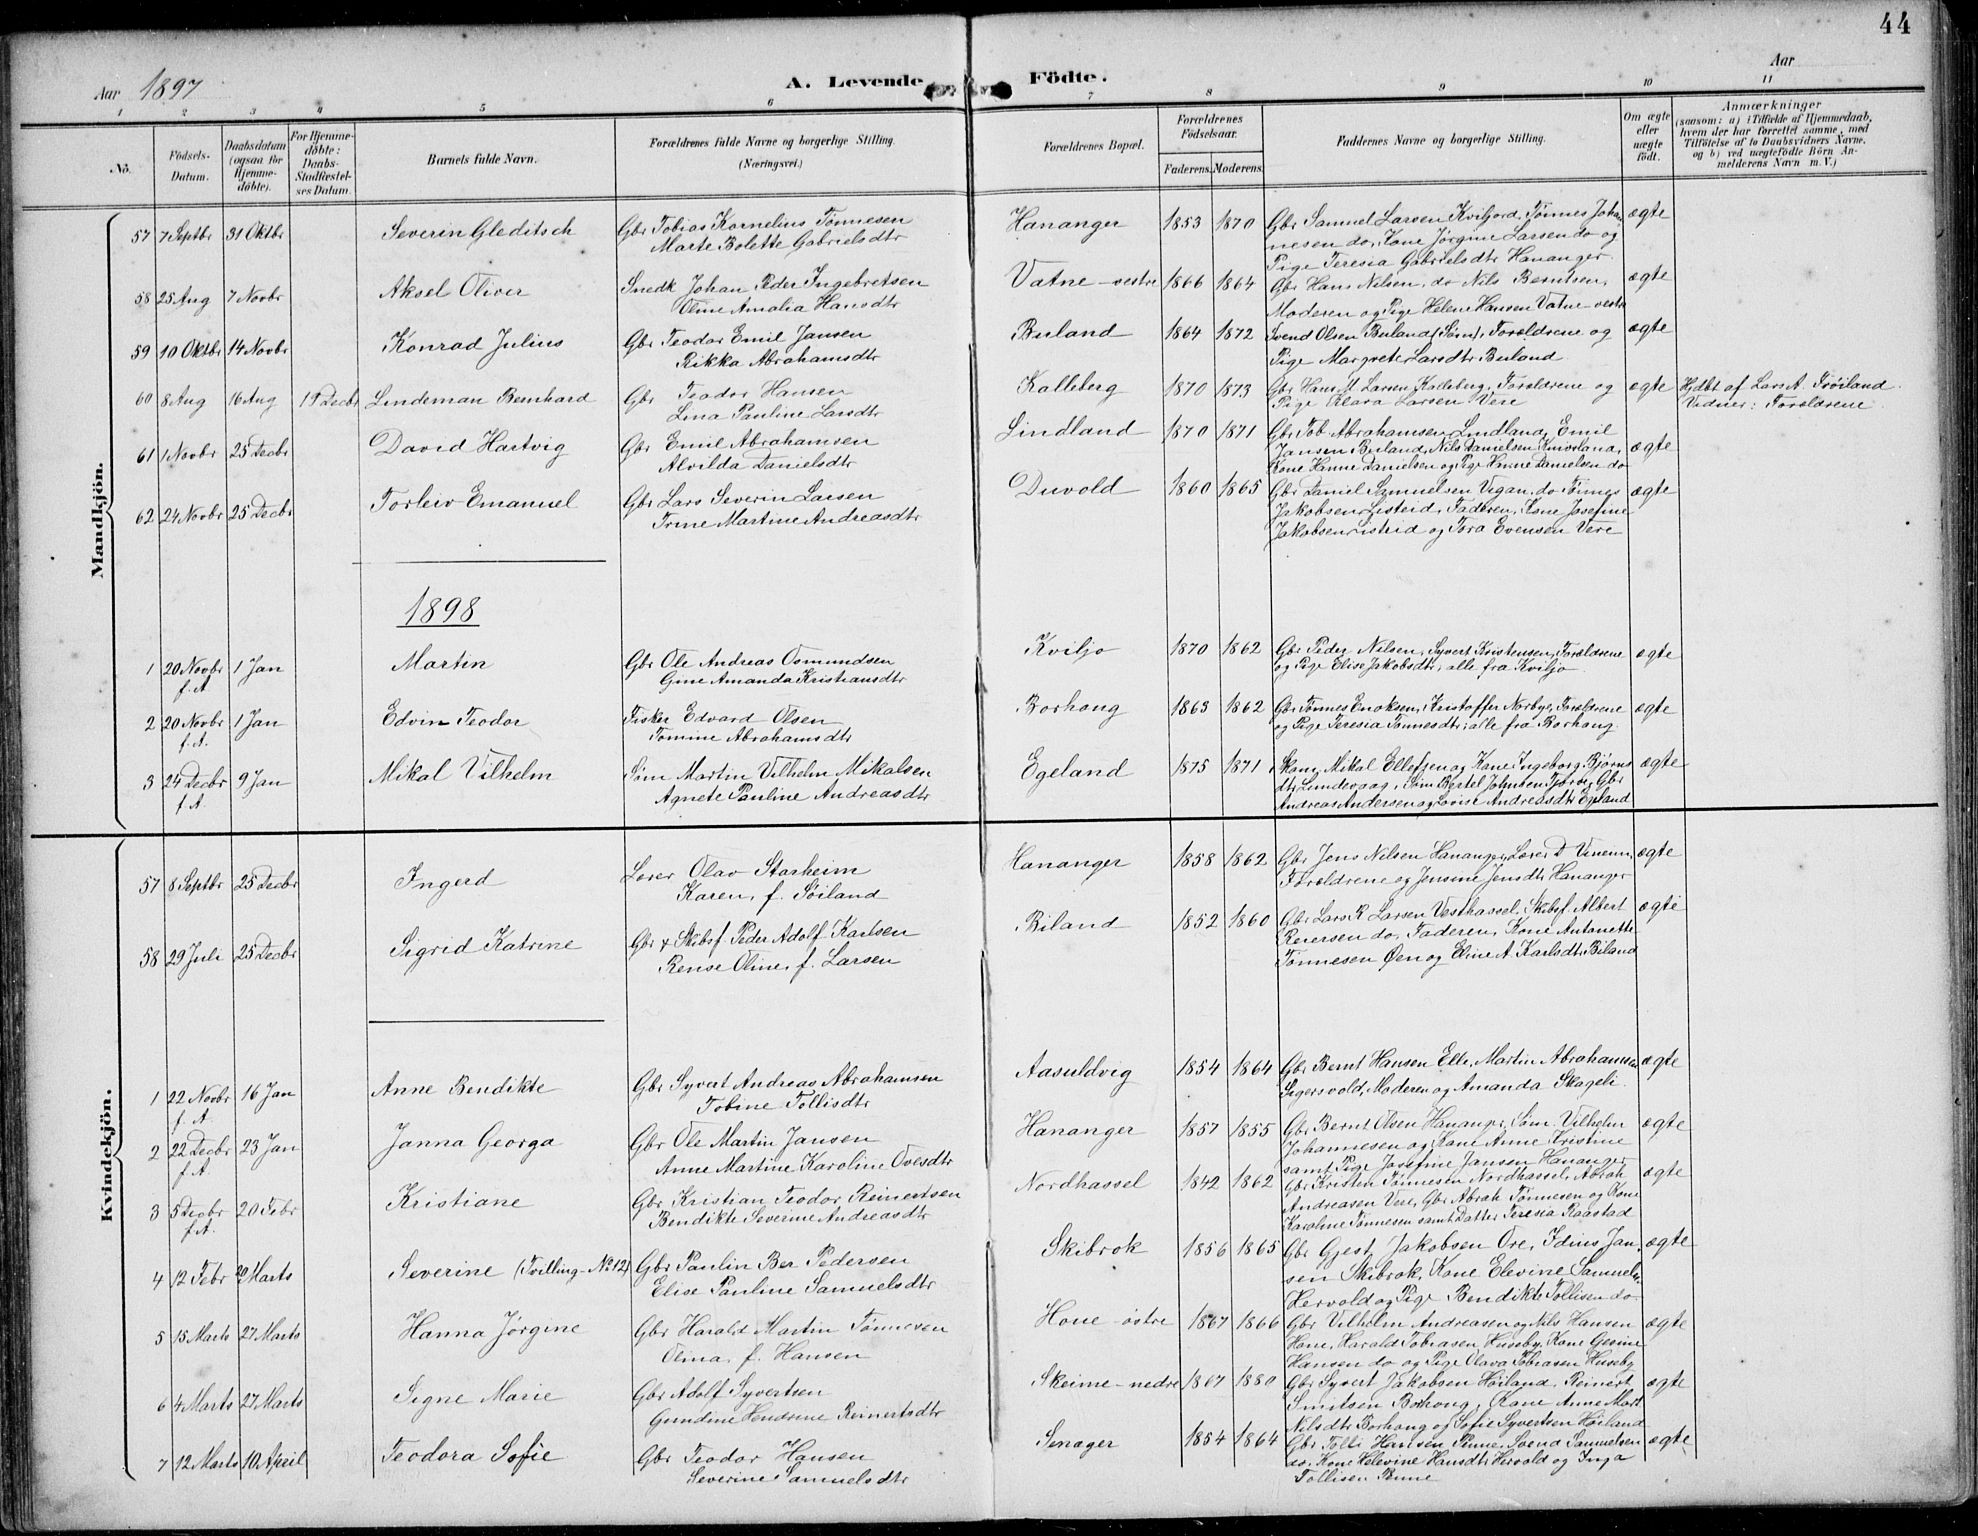 44
Aar 1897
A. Levende Födte.
Aar
1 2 3 4 5 6 7 8 9 10 11
No.
Födsels-Datum.
Daabsdatum (ogsaa for Hjemmedöbte).
For Hjemmedöbte: Daabs-Stadfæstelses Datum.
Barnets fulde Navn.
Forældrenes fulde Navne og borgerlige Stilling.
(Næringsvei.)
Forældrenes Bopæl.
Forældrenes Födselsaar.
Faderens. Moderens.
Faddernes Navne og borgerlige Stilling.
Om ægte eller uægte födt.
Anmærkninger
(saasom: a) i Tilfælde af Hjemmedaab, hvem der har forrettet samme, med Tilföielse af to Daabsvidners Navne, og b) ved uægtefödte Börn Anmelderens Navn m. V.)
Mandkjön.
57 7 Septbr 31 Oktbr Severin Gleditsch Gbr Tobias Kornelius Tønnesen Hananger 1853 1870 Gbr Samuel Larsen Kvifjord, Tønnes Johan- ægte
Marte Bolette Gabrielsdtr nesen do, Kone Jørgine Larsen do og
Pige Teresia Gabrielsdtr Hananger
58 25 Aug 7 Novbr Aksel Oliver Snedk Johan Peder Ingebretsen Vatne-vestre 1866 1864 Gbr Hans Nilsen, do Nils Berntsen, ægte
Oline Amalia Hansdtr Moderen og Pige Helene Hansen Vatne-vestre
59 10 Oktbr 14 Novbr Konrad Julius Gbr Teodor Emil Jansen Buland 1864 1872 Svend Olsen Buland (Søm), Forældrene og ægte
Rikka Abrahamsdtr Pige Margrete Larsdtr Buland
60 8 Aug 16 Aug 1 Decbr Lindeman Bernhard Gbr Teodor Hansen Kalleberg 1870 1873 Gbr Hans M Larsen Kalleberg, Forældrene og ægte Hjdbt af Lars A. Frøiland.
Lina Pauline Larsdtr Pige Klara Larsen Vere Vidner: Forældrene.
61 1 Novbr 25 Decbr David Hartvig Gbr Emil Abrahamsen Lindland 1870 1871 Gbr Tob Abrahamsen Lindland, Emil
Alvilda Danielsdtr Jansen Buland, Nils Danielsen ægte
Kone Hanne Danielsen og Pige Hanne Danielsen do
62 24 Novbr 25 Decbr Torleiv Emanuel Gbr Lars Severin Larsen Duvold 1860 1865 Gbr Daniel Samuelsen Vigan, do Tønnes ægte
Trine Martine Andreasdtr Jakobsen Listeid, Faderen, Kone Josefine
Jakobsen Listeid og Tora Evensen Vere
1898
1 20 Novbr f.A 1 Jan Martin Gbr Ole Andreas Osmundsen Kviljo 1870 1862 Gbr Peder Nilsen, Syvert Kristensen, Forældrene ægte
Gine Amanda Kristiansdtr og Pige Elise Jakobsdtr, alle fra Kviljo
2 20 Novbr f.A. 1 Jan Edvin Teodor Fisker Edvard Olsen Borhaug 1863 1862 Gbr Tønnes Enoksen, Kristoffer Nørbye, Forældrene ægte
Tomine Abrahamsdtr og Pige Teresia Tønnesdtr, alle fra Borhaug.
3 24 Decbr f.A 9 Jan Mikal Vilhelm Søm Martin Vilhelm Mikalsen Egeland 1875 1871 Skom Mikal Ellefsen og Kone Ingeborg Bjørns- ægte
Agnete Pauline Andreasdtr dtr Lundevaag, Søm Bertel Johnsen Tjorve, Gbr
Andreas Andersen og Lovise Andreasdtr Egeland
Kvindekjön.
57 8 Septbr 25 Decbr Ingerd Lærer Olav Starheim Hananger 1858 1862 Gbr Jens Nilsen Hananger, Lærer D Vinenn, ægte
Karen, f. Søiland Forældrene og Jensine Jensdtr Hananger
58 29 Juli 25 Decbr Sigrid Katrine Gbr & Skibsf. Peder Adolf Karlsen Biland 1852 1860 Gbr Lars R Larsen Vesthassel, Skibsf. Albert ægte
Rense Oline, f. Larsen Reiersen do, Faderen, Kone Antonette
Tønnesen Øen og Eline A. Karlsdtr Biland
1 22 Novbr f. A. 16 Jan Anne Bendikte Gbr Syvert Andreas Abrahamsen Aasuldvig 1854 1864 Gbr Bernt Hansen Elle, Martin Abrahamsen ægte
Tobine Tollisdtr Sigersvold, Moderen og Amanda Skageli.
2 22 Decbr f.A 23 Jan Janna Georga Gbr Ole Martin Jansen Hananger 1857 1855 Gbr Bernt Olsen Hananger, Søm. Vilhelm ægte
Anne Martine Karoline Ovesdtr Johannesen og Kone Anne Kristine
samt Pige Josefine Jansen Hananger
3 5 Decbr f.A. 20 Febr Kristiane Gbr Kristian Teodor Reinertsen Nordhassel 1842 1862 Gbr Kristen Tønnesen Nordhassel, Abrah ægte
Bendikte Severine Andreasdtr Andreasen Vere, Gbr Abrah Tønnesen og Kone
Karoline Tønnesen samt Datter Teresia Raastad
4 12 Febr 20 Marts Severine (Tvilling-No 12) Gbr Paulin Ber Pedersen Skibrok 1856 1865 Gbr Gjest Jakobsen Ore, Idius Jan- ægte
Elise Pauline Samuelsdtr sen Skibrok, Kone Elevine Samuelsen
Hervold og Pige Bendikte Tollisen do
5 15 Marts 27 Marts Hanna Jørgine Gbr Harald Martin Tønnesen Hone-østre 1867 1866 Gbr Vilhelm Andreasen og Nils Hansen ægte
Olina, f. Hansen Hone, Harald Tobiasen Huseby, Kone Gesine
Hansen do og Pige Olava Tobiasen Huseby
6 4 Marts 27 Marts Signe Marie Gbr Adolf Syvertsen Skeime-nedre 1867 1880 Gbr Syvert Jakobsen Høiland, Reinert ægte
Gundine Hendrine Reinertsdtr Smitsen Borhaug, Kone Anne Mart
Nilsdtr Borhaug og Sofie Syvertsen Høiland
7 12 Marts 10 April Teodora Sofie Gbr Teodor Hansen Snager 1854 1864 Gbr Tolli Hansen Penne, Svend Samuelsen ægte
Severine Samuelsdtr do, Kone Helevine Hansdtr Hervold og Inga
Tollisen Penne